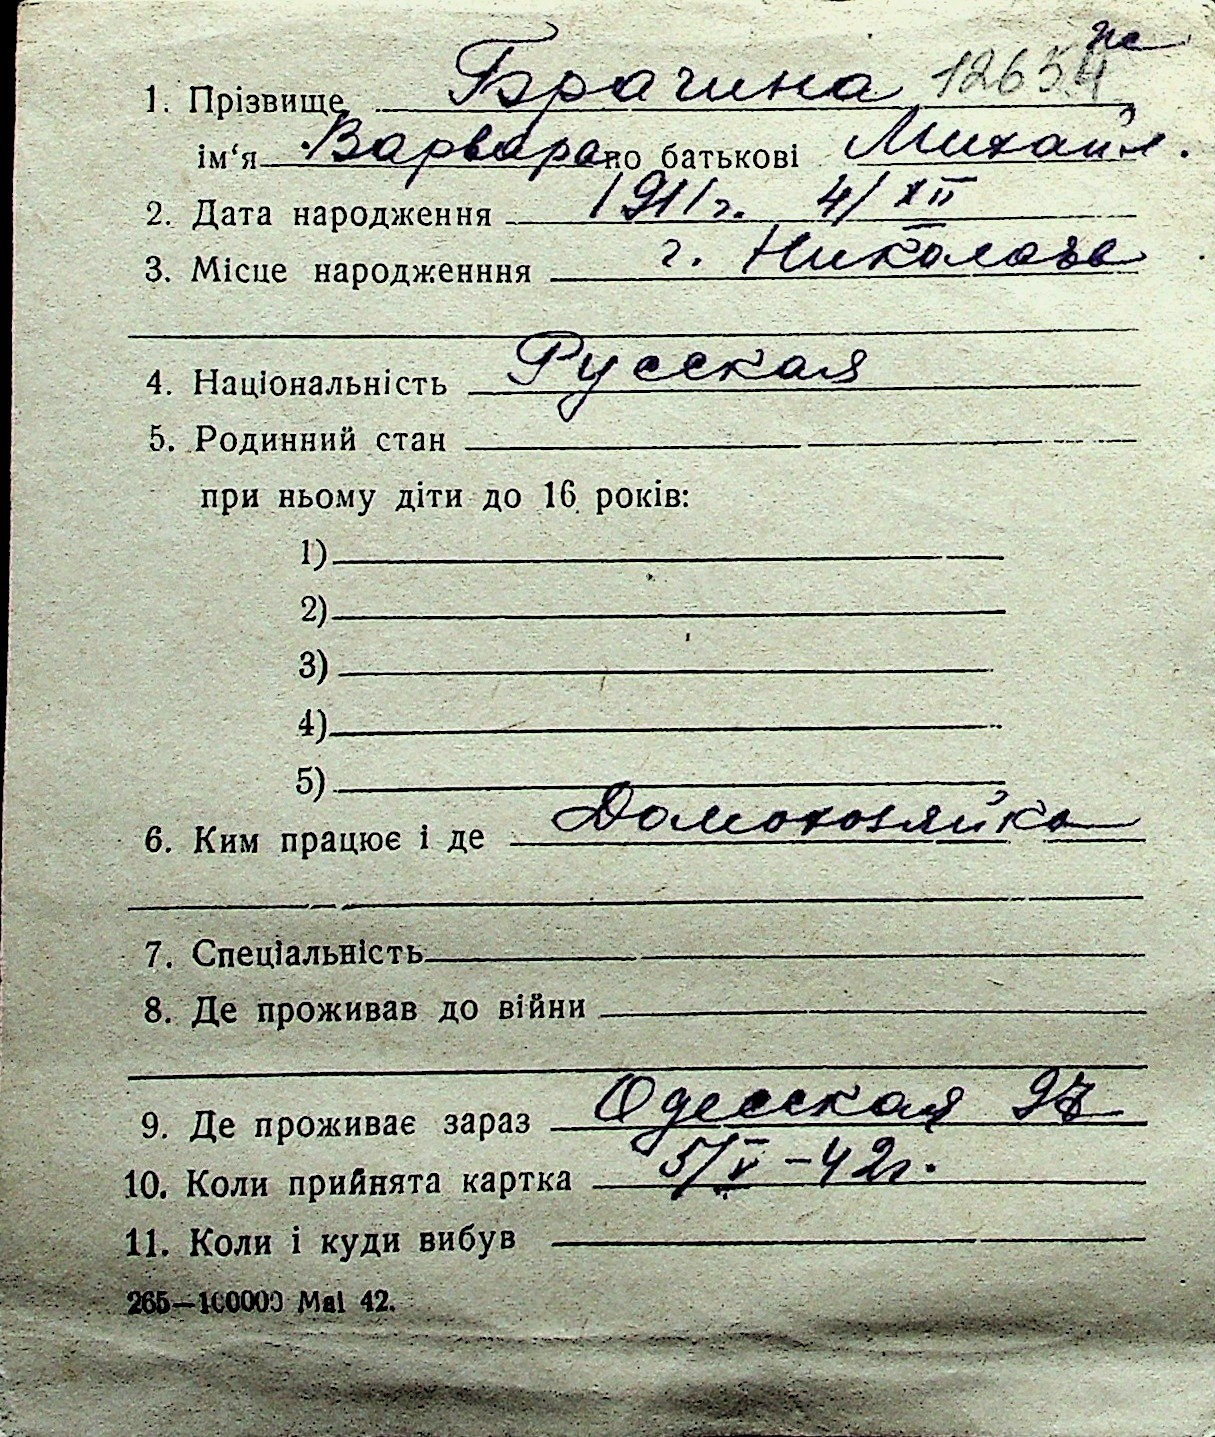 же
1. Прізвище Брагина 12654
ім‘я Варвара по батькові Михайл.
2. Дата народження 1911 г. 4/XII
3. Місце народженння г. Николаев
4. Національність Русская
5. Родинний стан
при ньому діти до 16 років:
1)
2)
3)
4)
5)
6. Ким працює і де Домохозяйка
7. Спеціальність
8. Де проживав до війни
9. Де проживає зараз Одесская 97
10. Коли прийнята картка 5/V-42г.
11. Коли і куди вибув
265—100000 Mai 42.